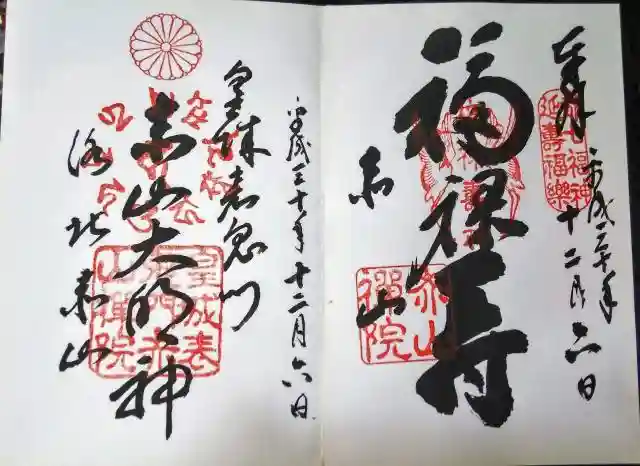 奉拝
平成三十年
十二月六日
七福神
延壽福樂
福禄寿
赤山
赤山禪院
平成三十年十二月六日
皇城表鬼門
赤山大明神
洛北赤山
皇城表鬼門赤山禪院